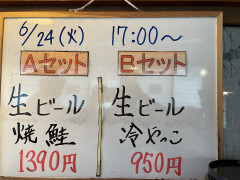 6/24(火) 17:00〜
Aセット Bセット
生ビール 生ビール
焼鮭 冷やっこ
1390円 950円